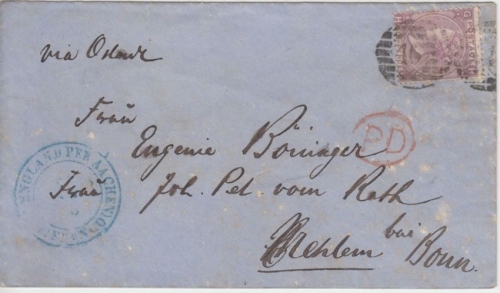 via Ostende
Frau
Eugenie Böninger
Frau Joh. Pet. vom Rath
Mehlem bei Bonn.
PD
ENGLAND PER AACHEN
FRANCO
POSTAGE